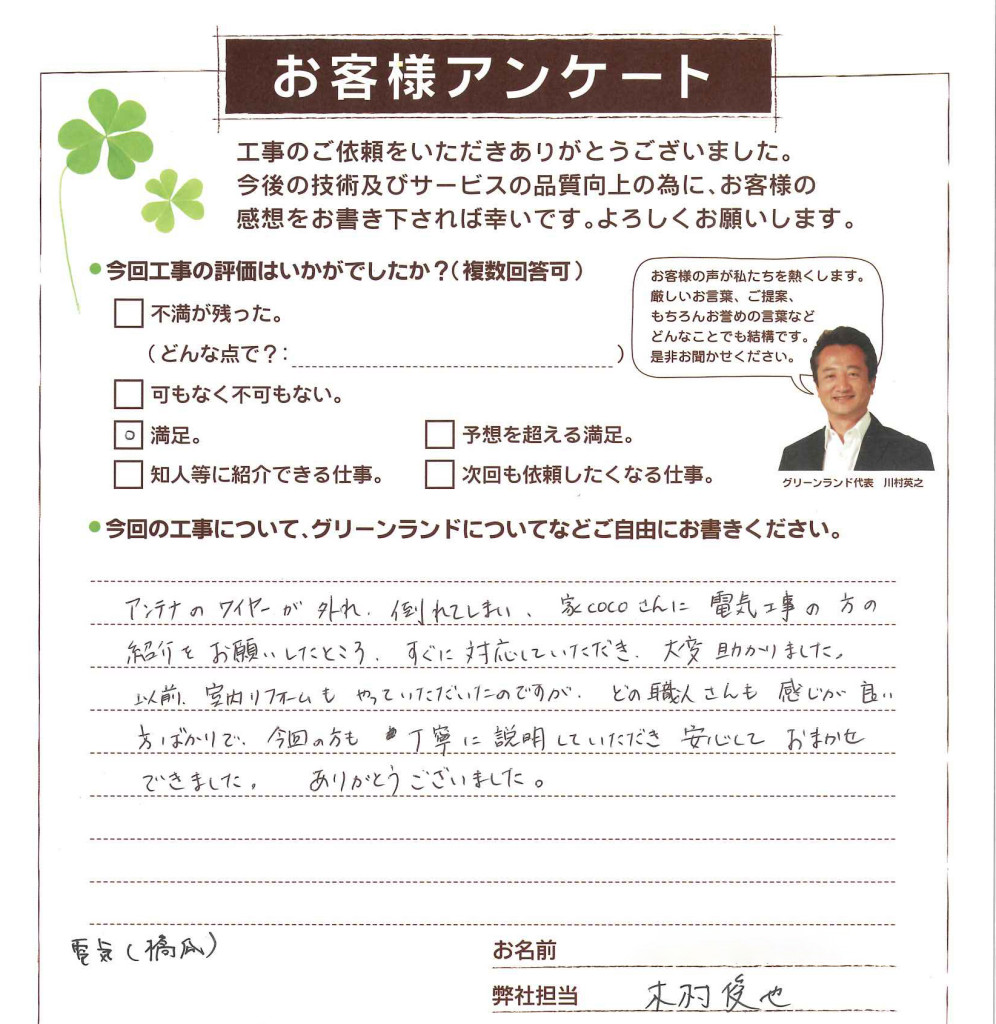 お客様アンケート
工事のご依頼をいただきありがとうございました。
今後の技術及びサービスの品質向上の為に、お客様の
感想をお書き下されば幸いです。よろしくお願いします。
●今回工事の評価はいかがでしたか?(複数回答可)
□ 不満が残った。
(どんな点で?: )
□ 可もなく不可もない。
○ 満足。
□ 予想を超える満足。
□ 知人等に紹介できる仕事。
□ 次回も依頼したくなる仕事。
お客様の声が私たちを熱くします。
厳しいお言葉、ご提案、
もちろんお誉めの言葉など
どんなことでも結構です。
是非お聞かせください。
グリーンランド代表 川村英之
●今回の工事について、グリーンランドについてなどご自由にお書きください。
アンテナの ワイヤーが 外れ、倒れてしまい、家cocoさんに 電気工事の 方の
紹介を お願いしたところ、すぐに 対応していただき、大変 助かりました。
以前、室内リフォームも やっていただいたのですが、どの職人さんも 感じが 良い
方ばかりで、今回の方も 丁寧に 説明していただき 安心して おまかせ
できました。 ありがとうございました。
電気(
お名前
弊社担当 木村俊也